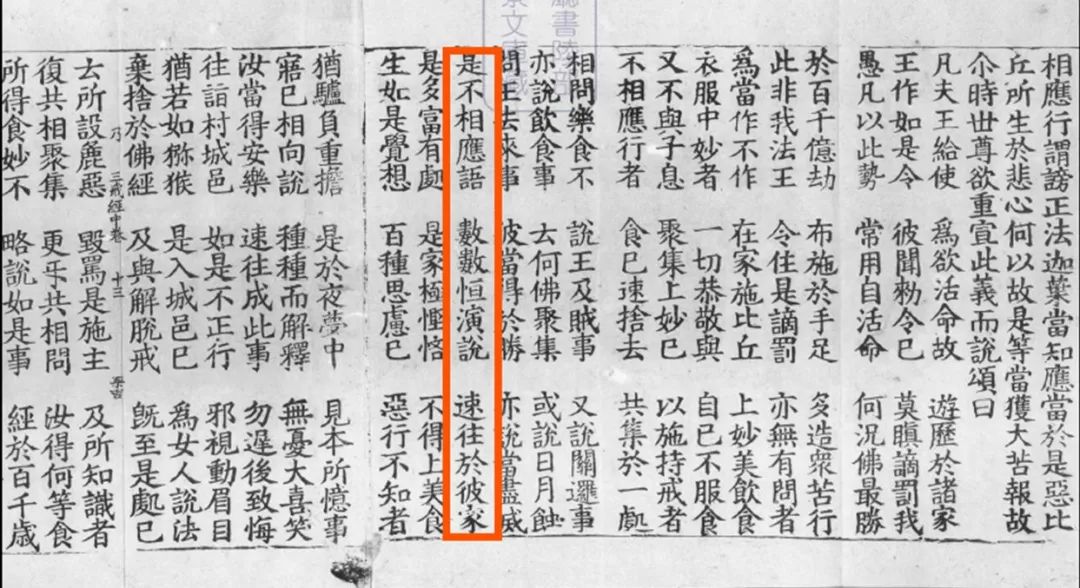 相應行謂謗正法迦葉當知應當於是惡比
丘所生於悲心何以故是等當獲大苦報故
尒時世尊欲重宣此義而說頌曰
凡夫王給使 爲欲活命故 遊歷於諸家
王作如是令 彼聞勑令已 莫瞋謫罰我
愚凡以此勢 常用自活命 何況佛最勝
於百千億劫 布施於手足 多造衆苦行
此非我法王 令住是謫罰 亦無有問者
爲當作不作 在家施比丘 上妙美飲食
衣服中妙者 一切恭敬與 自已不服食
又不與子息 聚集上妙已 以施持戒者
不相應行者 食已速捨去 共集於一處
相問樂食不 說王及賊事 又說關邏事
亦說飲食事 去何佛聚集 或說日月蝕
問王去來事 彼當得於勝 亦說當盡威
是不相應語 數數恒演說 速往於彼家
是多富有處 是家極慳悋 不得上美食
生如是覺想 百種思慮已 惡行不知者
猶驢負重擔 是於夜夢中 見本所憶事
寤已相向說 種種而解釋 無憂大喜笑
汝當得安樂 速往成此事 勿遲後致悔
往詣村城邑 如是不正行 邪視動眉目
猶若如獼猴 是入城邑已 爲女人說法
棄捨於佛經 及與解脫戒 旣至是處已
乃 三戒經中卷 十三
去所設麁惡 毀罵是施主 及所知識者
復共相聚集 更㸦共相問 汝得何等食
所得食妙不 略說如是事 經於百千歲
書陵部
文庫藏